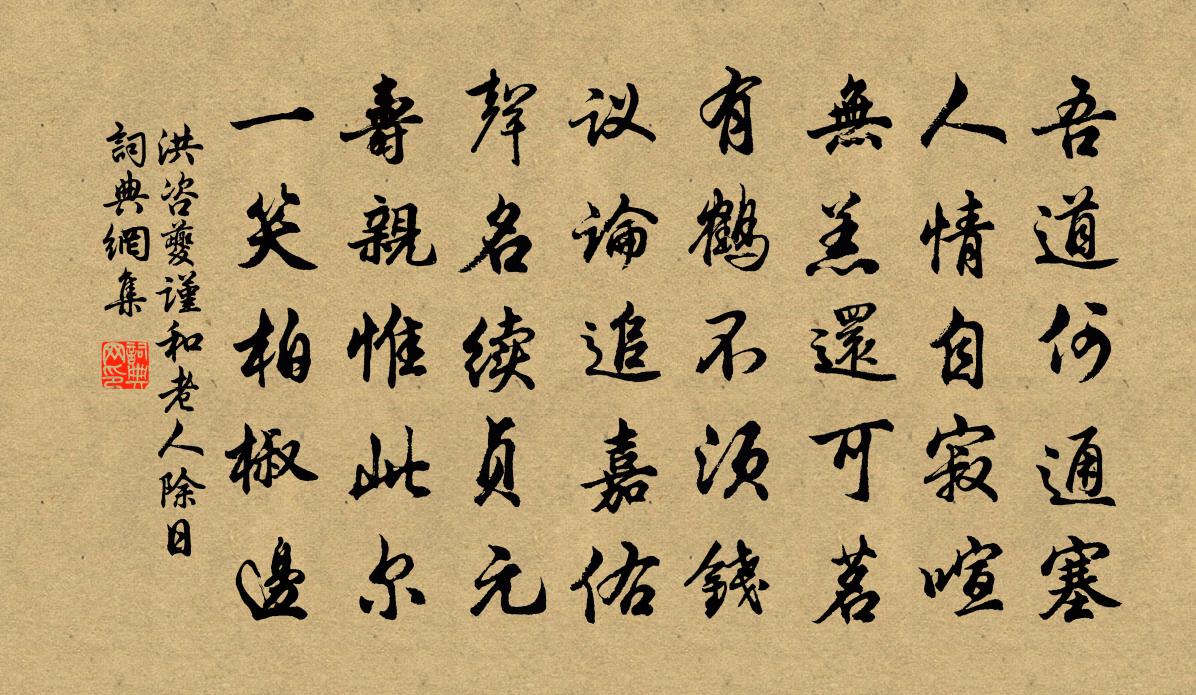 吾道何通塞
人情自寂喧
無羔還可茗
有鶴不須錢
议論追嘉佑
聲名续貞元
壽親惟此尔
一笑柏椒邊
洪咨夔谨和老人除日
詞典網集
詞典网印